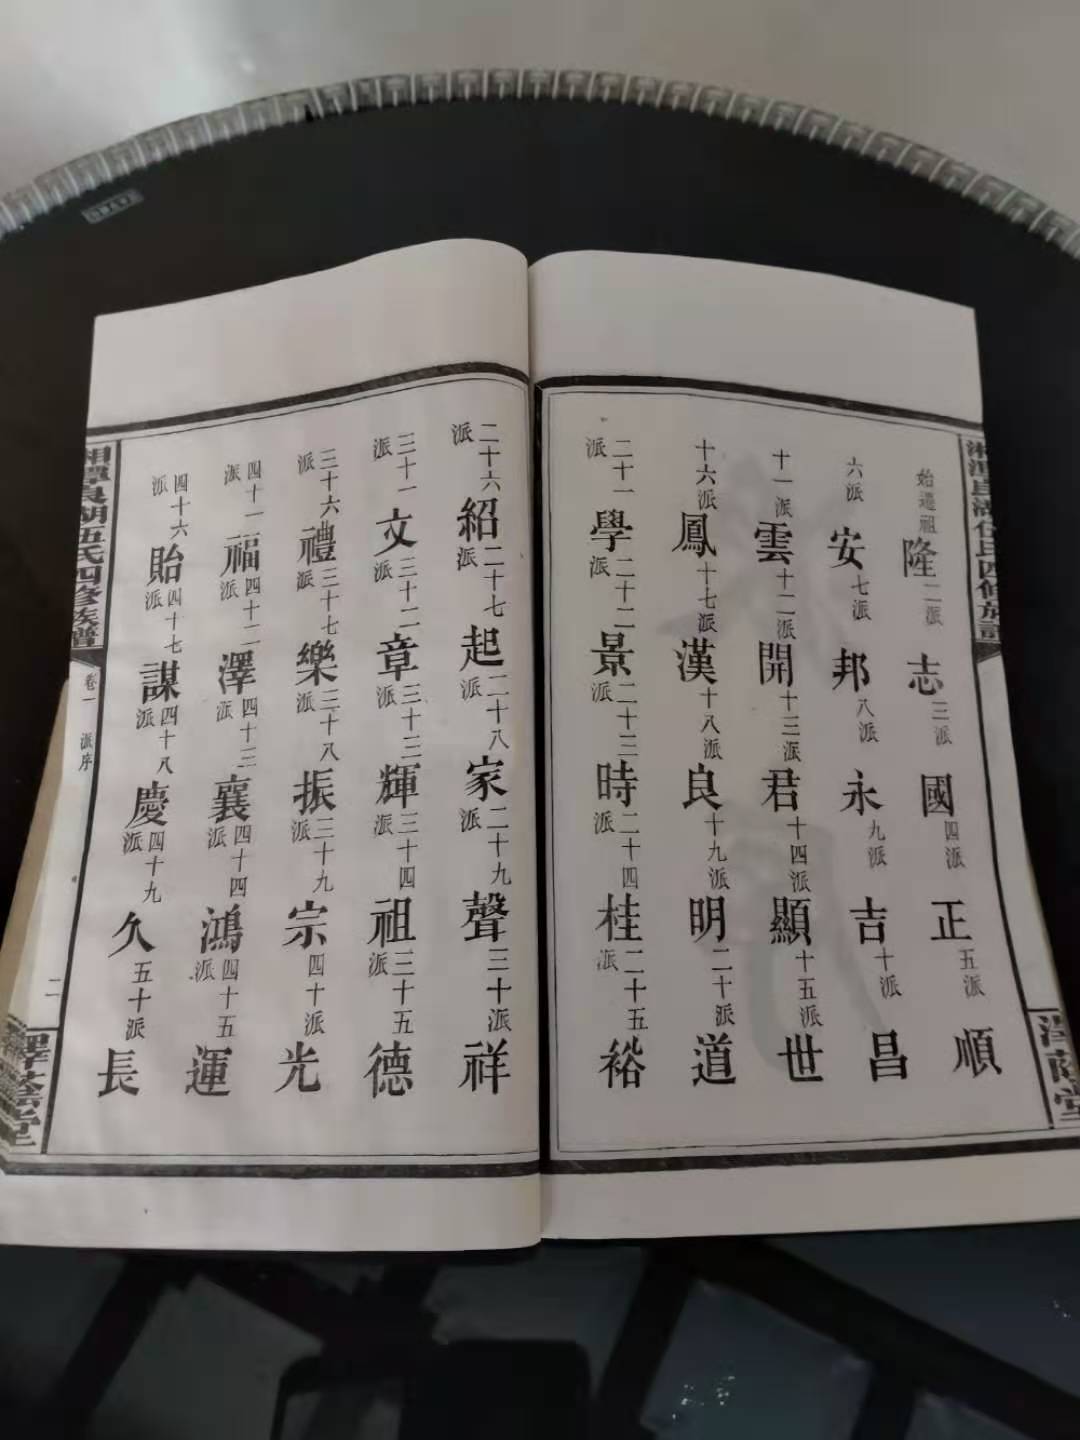 湘潭良湖伍氏四修族譜
澤蔭堂
始遷祖隆二派志三派國四派正五派順
六派安七派邦八派永九派吉十派昌
十一派雲十二派開十三派君十四派顯十五派世
十六派鳳十七派漢十八派良十九派明二十派道
二十一派學二十二派景二十三派時二十四派桂二十五派裕
二十六派紹二十七派起二十八派家二十九派聲三十派祥
三十一派文三十二派章三十三派輝三十四派祖三十五派德
三十六派禮三十七派樂三十八派振三十九派宗四十派光
四十一派福四十二派澤四十三派襄四十四派鴻四十五派運
四十六派貽四十七派謀四十八派慶四十九派久五十派長
湘潭良湖伍氏四修族譜 卷一 派序 二 澤蔭堂